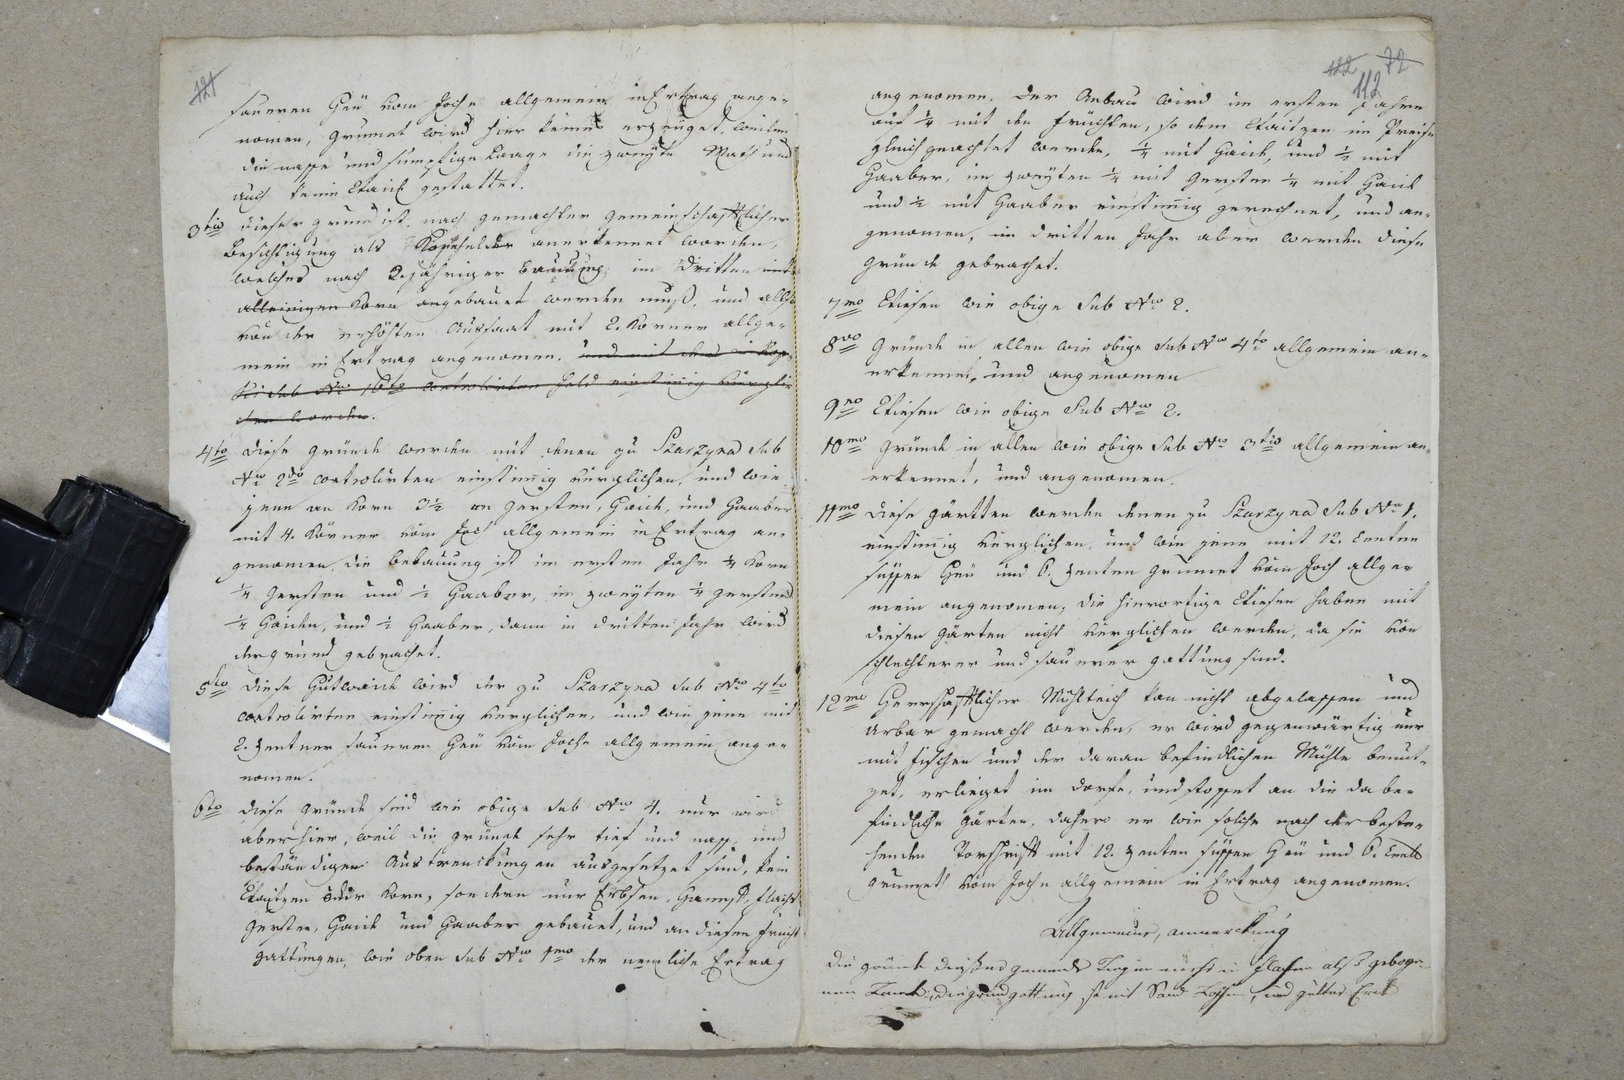 121
saueren Heü vom Joche allgemein in Ertrag ange-
nomen, grumet wird hier keines erzeüget, weilen
die nasse und sumpfige Laage die zweyte Math und
auch keine Waid gestattet.
3tio dieser grund ist, nach gemachter gemeinschaftlicher
Besichtigung als Kornfelder anerkennet worden,
welches nach 2. jähriger im dritten mit
alleinigen Korn angebauet werden muß, und all
von der erhöhten Aussaat mit 2. Körner allge-
mein in Ertrag angenomen. und mit dem in
sub Nro 16to controlirten Feld einstimig verglie-
chen worden.
4to diese gründe werden mit denen zu Szarzyna Sub
Nro 2do controlirten einstimig verglichen, und wie
jene an Korn 3½ an gersten, Haid, und Haaber
mit 4. Körner vom Joch allgemein in Ertrag an-
genomen, die bebauung ist im ersten Jahr ¼ Korn
¼ gersten und ½ Haaber, im zweyten ¼ gersten
¼ Haiden, und ½ Haaber, dann in dritten Jahr wird
der grund gebrachet.
5to diese Hutwaide wird der zu Szarzyna Sub Nro 4to
controlirten einstimig verglichen, und wie jene mit
2. Zentner saueren Heü vom Joche allgemein ange-
nomen.
6to diese gründe sind wie obige sub Nro 4. nur wird
aber hier, weil die gründe sehr tief und nass, und
beständigen Austrenkungen ausgesetzet sind, kein
Waitzen oder Korn, sondern nur Erbsen, Hannf, flachs
gersten, Haid und Haaber gebauet, und an diesen frucht
gattungen, wie oben sub Nro 1mo der nemliche Ertrag
122 72
112
angenomen. der Anbau wird im ersten Jahre
auf ¼ mit den früchten, so dem Waitzen im Preise
gleich geachtet werden, ¼ mit Haid, und ½ mit
Haaber, im zweyten ¼ mit gersten ¼ mit Haid
und ½ mit Haaber einstimig gerechnet, und an-
genomen, im dritten Jahr aber werden diese
gründe gebrachet.
7mo Wiesen wie obige Sub Nro 2.
8vo gründe in allen wie obige sub Nro 4to allgemein an-
erkennet, und angenomen
9no Wiesen wie obige Sub Nro 2.
10mo gründe in allen wie obige sub Nro 3tio allgemein an-
erkennet, und angenomen.
11mo diese gärtten werden denen zu Szarzyna Sub Nro 1.
einstimig verglichen, und wie jene mit 12. Centner
süssen Heü und 6. Zenten grumet vom Joch allge-
mein angenomen, die hierortige Wiesen haben mit
diesen garten nicht verglichen werden, da sie von
schlechterer und sauerer gattung sind.
12mo Herrschaftlicher Mühlteich kan nicht abgelassen und
urbar gemacht werden, er wird gegenwärtig nur
mit fischen und der daran befindlichen Mühle benut-
zet, erlieget im dorfe, und stosset an die da be-
findliche gärten, dahero er wie solche nach der beste-
henden Vorschrift mit 12. Zenten süssen Heü und 6. Cent
grumet vom Joche allgemein in Ertrag angenomen.
Allgemeine, anmerckung
die gründe dieser gemeinde liegen meist in flachen als geboge-
nen Lande, die grundgattung ist mit Sand, und